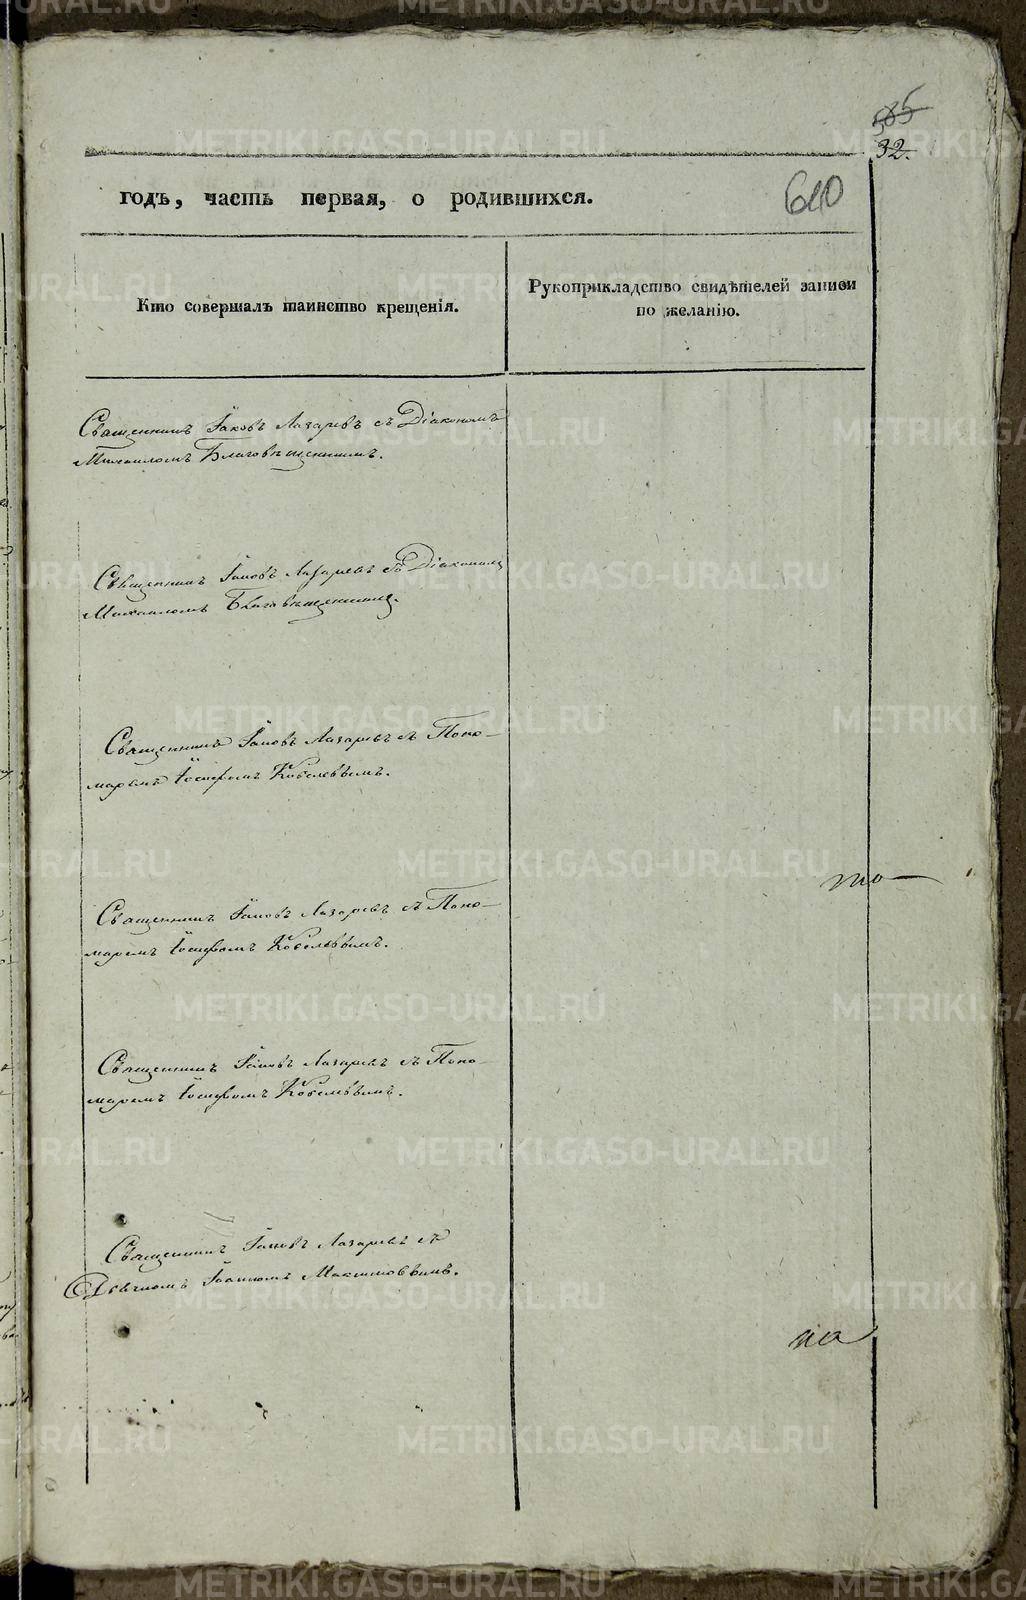 585
32.
610
годъ, часть первая, о родившихся.
Кто совершалъ таинство крещенія.
Рукоприкладство свидѣтелей записи
по желанію.
Священникъ Іаковъ Лазаревъ съ Діакономъ
Михаиломъ Благовѣщенскимъ.
Священникъ Іаковъ Лазаревъ съ Діакономъ
Михаиломъ Благовѣщенскимъ.
Священникъ Іаковъ Лазаревъ съ Поно-
маремъ Іосифомъ Кобелевымъ.
Священникъ Іаковъ Лазаревъ съ Поно-
маремъ Іосифомъ Кобелевымъ.
Священникъ Іаковъ Лазаревъ съ Поно-
маремъ Іосифомъ Кобелевымъ.
Священникъ Іаковъ Лазаревъ съ
Дьячкомъ Іоанномъ Максимовымъ.
METRIKI.GASO-URAL.RU